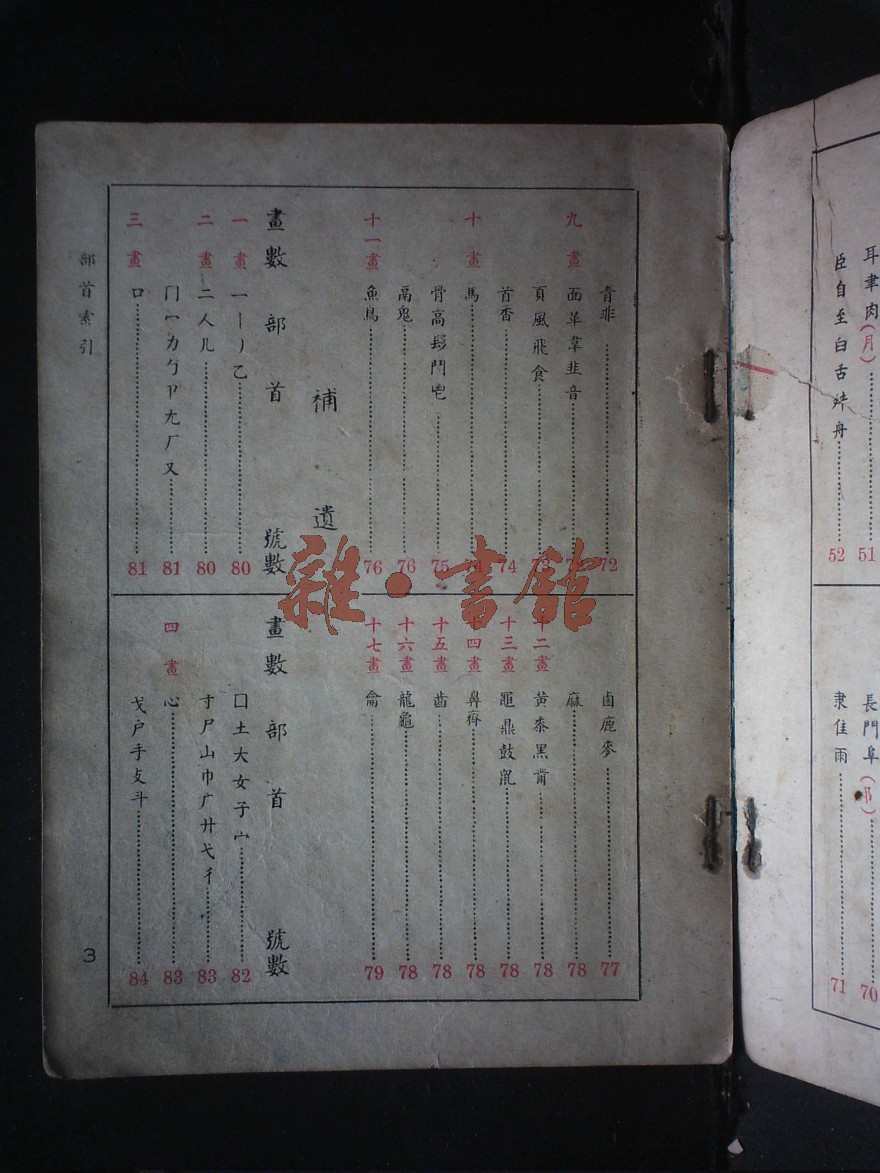 耳聿肉(月)……51
臣自至臼舌舛舟……52
長門阜(阝)……70
隶隹雨……71
青非……72
九畫 面革韋韭音
頁風飛食
首香……74
十畫 馬
骨高髟鬥鬯……75
鬲鬼……76
十一畫 魚鳥……76
補遺
畫數 部首 號數
一畫 一丨丿乙……80
二畫 二人儿……80
冂冖力勹卩尢厂又……81
三畫 口……81
鹵鹿麥……77
麻……78
十二畫 黃黍黑黹……78
十三畫 黽鼎鼓鼠……78
十四畫 鼻齊……78
十五畫 齒……78
十六畫 龍龜……78
十七畫 龠……79
畫數 部首 號數
囗土大女子宀……82
寸尸山巾广廾弋彳……83
四畫 心……83
戈戶手攴斗……84
部首索引
3
雜·書館